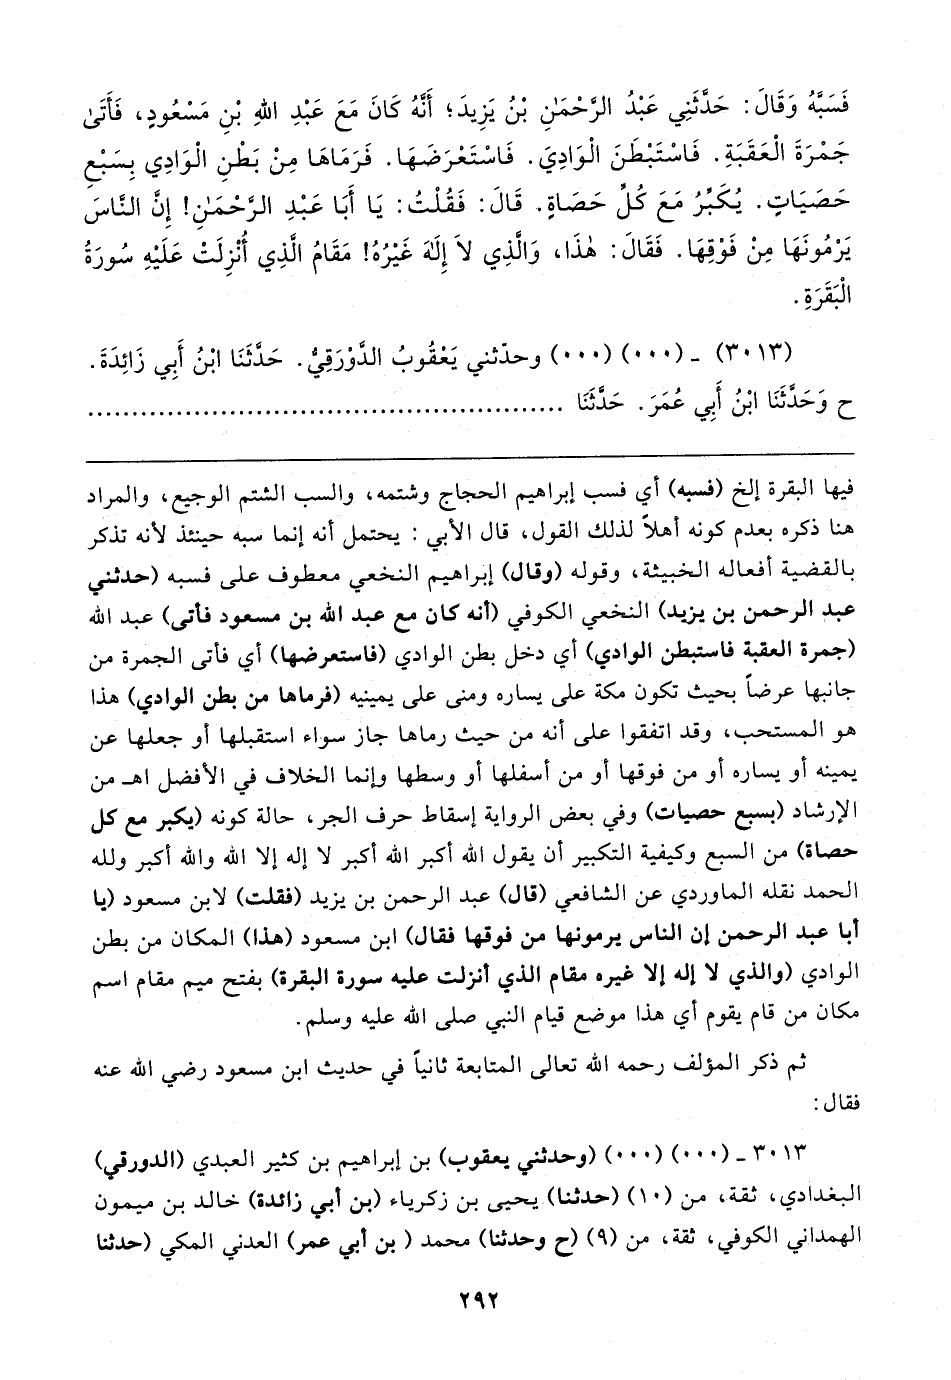 فَسَبَّهُ وَقَالَ: حَدَّثَنِي عَبْدُ الرَّحْمَٰنِ بْنُ يَزِيدَ؛ أَنَّهُ كَانَ مَعَ عَبْدِ اللهِ بْنِ مَسْعُودٍ، فَأَتَىٰ
جَمْرَةَ الْعَقَبَةِ. فَاسْتَبْطَنَ الْوَادِيَ. فَاسْتَعْرَضَهَا. فَرَمَاهَا مِنْ بَطْنِ الْوَادِي بِسَبْعِ
حَصَيَاتٍ. يُكَبِّرُ مَعَ كُلِّ حَصَاةٍ. قَالَ: فَقُلْتُ: يَا أَبَا عَبْدِ الرَّحْمَٰنِ! إِنَّ النَّاسَ
يَرْمُونَهَا مِنْ فَوْقِهَا. فَقَالَ: هٰذَا، وَالَّذِي لاَ إِلَهَ غَيْرُهُ! مَقَامُ الَّذِي أُنْزِلَتْ عَلَيْهِ سُورَةُ
الْبَقَرَةِ.
(٣٠١٣) - (٠٠٠) (٠٠٠) وحدّثني يَعْقُوبُ الدَّوْرَقِيُّ. حَدَّثَنَا ابْنُ أَبِي زَائِدَةَ.
ح وَحَدَّثَنَا ابْنُ أَبِي عُمَرَ. حَدَّثَنَا ......................................................
فيها البقرة إلخ (فسبه) أي فسب إبراهيم الحجاج وشتمه، والسب الشتم الوجيع، والمراد
هنا ذكره بعدم كونه أهلاً لذلك القول، قال الأبي: يحتمل أنه إنما سبه حينئذ لأنه تذكر
بالقضية أفعاله الخبيثة، وقوله (وقال) إبراهيم النخعي معطوف على فسبه (حدثني
عبد الرحمن بن يزيد) النخعي الكوفي (أنه كان مع عبد الله بن مسعود فأتى) عبد الله
(جمرة العقبة فاستبطن الوادي) أي دخل بطن الوادي (فاستعرضها) أي فأتى الجمرة من
جانبها عرضاً بحيث تكون مكة على يساره ومنى على يمينه (فرماها من بطن الوادي) هذا
هو المستحب، وقد اتفقوا على أنه من حيث رماها جاز سواء استقبلها أو جعلها عن
يمينه أو يساره أو من فوقها أو من أسفلها أو وسطها وإنما الخلاف في الأفضل اهـ من
الإرشاد (بسبع حصيات) وفي بعض الرواية إسقاط حرف الجر، حالة كونه (يكبر مع كل
حصاة) من السبع وكيفية التكبير أن يقول الله أكبر الله أكبر لا إله إلا الله والله أكبر ولله
الحمد نقله الماوردي عن الشافعي (قال) عبد الرحمن بن يزيد (فقلت) لابن مسعود (يا
أبا عبد الرحمن إن الناس يرمونها من فوقها فقال) ابن مسعود (هذا) المكان من بطن
الوادي (والذي لا إله إلا غيره مقام الذي أنزلت عليه سورة البقرة) بفتح ميم مقام اسم
مكان من قام يقوم أي هذا موضع قيام النبي صلى الله عليه وسلم.
ثم ذكر المؤلف رحمه الله تعالى المتابعة ثانياً في حديث ابن مسعود رضي الله عنه
فقال:
٣٠١٣ - (٠٠٠) (٠٠٠) (وحدثني يعقوب) بن إبراهيم بن كثير العبدي (الدورقي)
البغدادي، ثقة، من (١٠) (حدثنا) يحيى بن زكرياء (بن أبي زائدة) خالد بن ميمون
الهمداني الكوفي، ثقة، من (٩) (ح وحدثنا) محمد ( بن أبي عمر) العدني المكي (حدثنا
٢٩٢